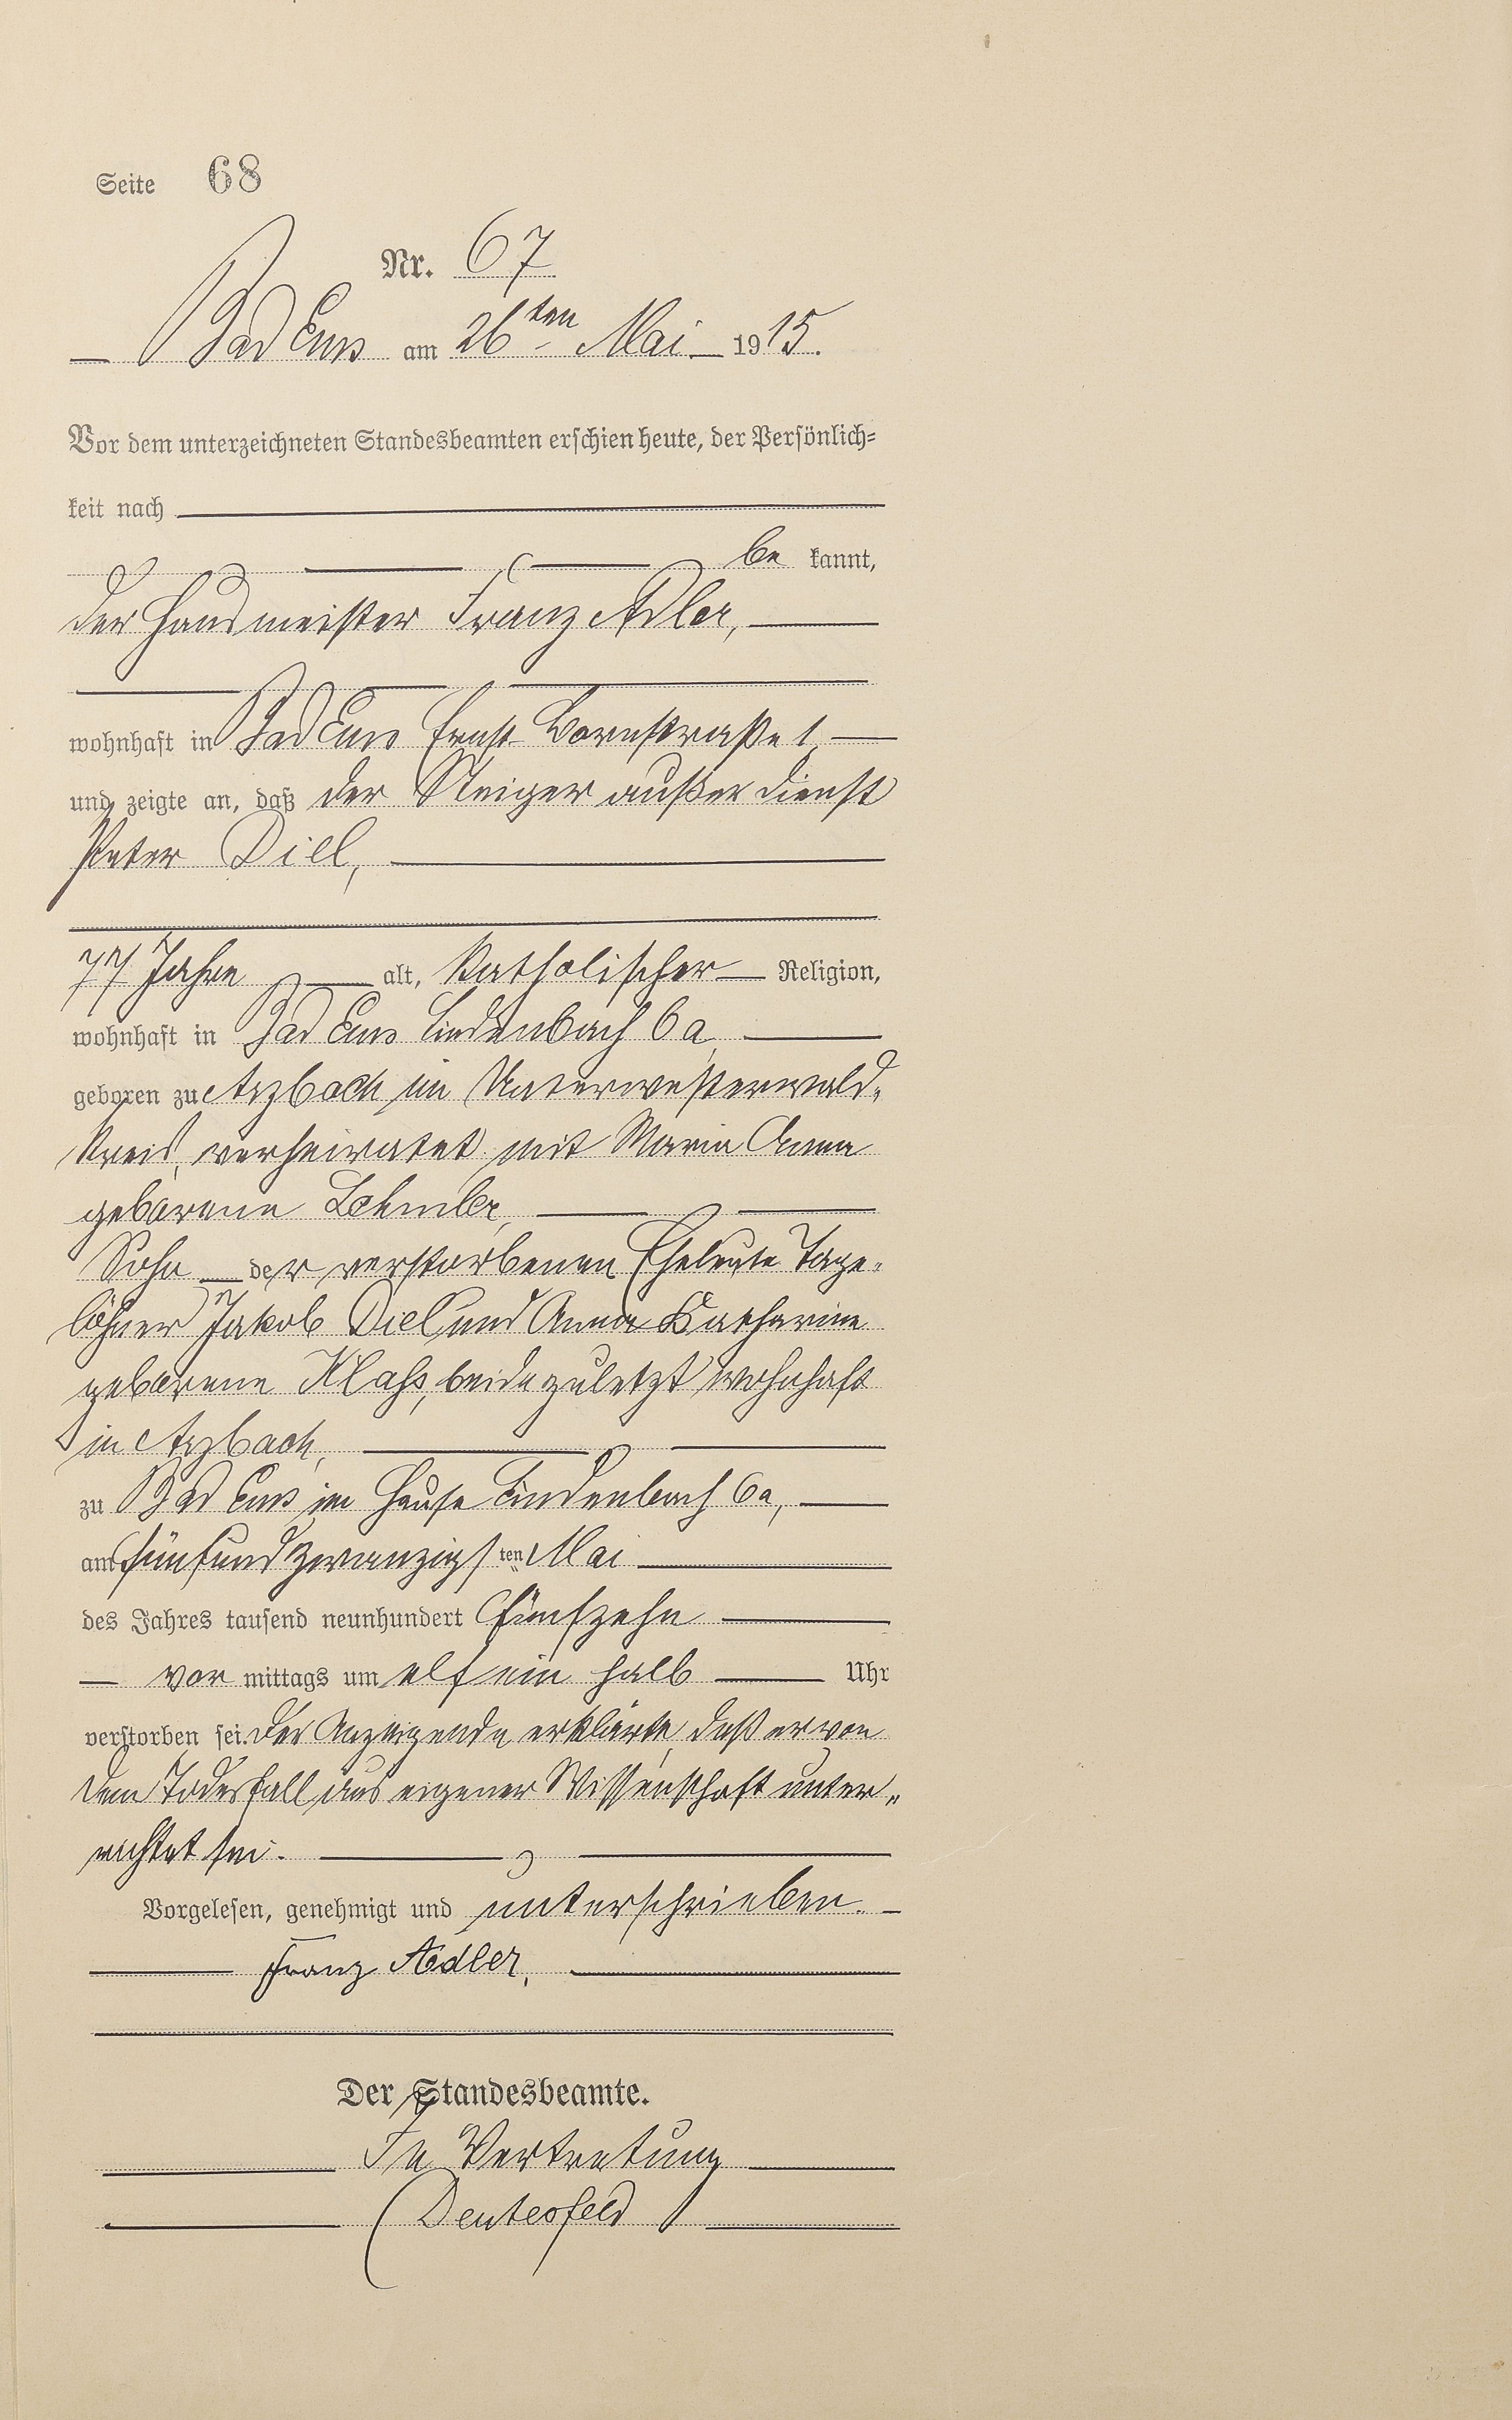 Seite 68
Nr. 67
Bad Ems am 26ten Mai 1915.
Vor dem unterzeichneten Standesbeamten erschien heute, der Persönlich=
keit nach
be kannt,
der Hausmeister Franz Adler,
wohnhaft in Bad Ems Ernst Bornstraße 1
und zeigte an, daß der Steiger außer Dienst
Peter Diel,
77 Jahre alt, katholischer Religion,
wohnhaft in Bad Ems Lindenbach 6a,
geboren zu Arzbach im Unterwesterwald=
kreis, verheiratet mit Maria Anna
geborene
Sohn der verstorbenen Eheleute Tage=
löhner Jakob Diel und Anna Katharina
geborene Klahs, beide zuletzt wohnhaft
in Arzbach,
zu Bad Ems im Hause Lindenbach 6a,
am fünfundzwanzigsten Mai
des Jahres tausend neunhundert fünfzehn
vor mittags um elf ein halb Uhr
verstorben sei. Der Anzeigende erklärte, daß er von
dem Todesfall aus eigener Wissenschaft unter=
richtet sei.
Vorgelesen, genehmigt und unterschrieben.
Franz Adler,
Der Standesbeamte.
In Vertretung